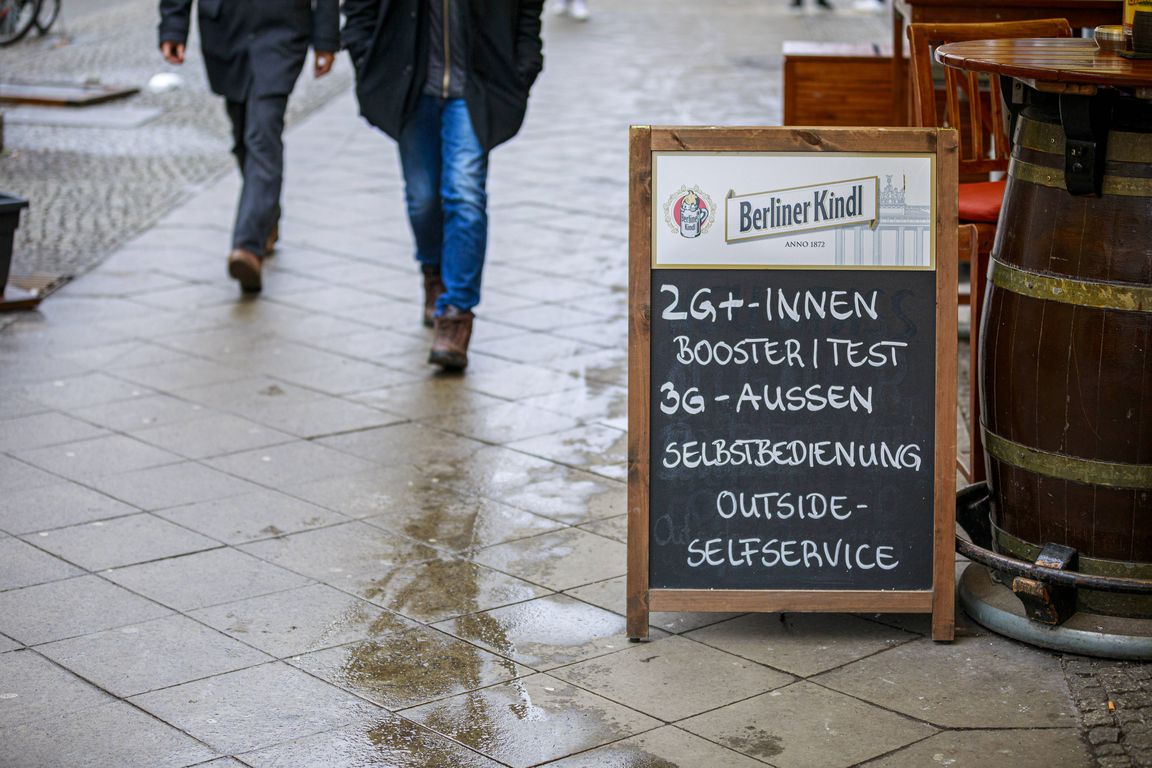 Berliner Kindl
Berliner Kindl
ANNO 1872
2G+-INNEN
BOOSTER | TEST
3G-AUSSEN
SELBSTBEDIENUNG
OUTSIDE-
SELFSERVICE